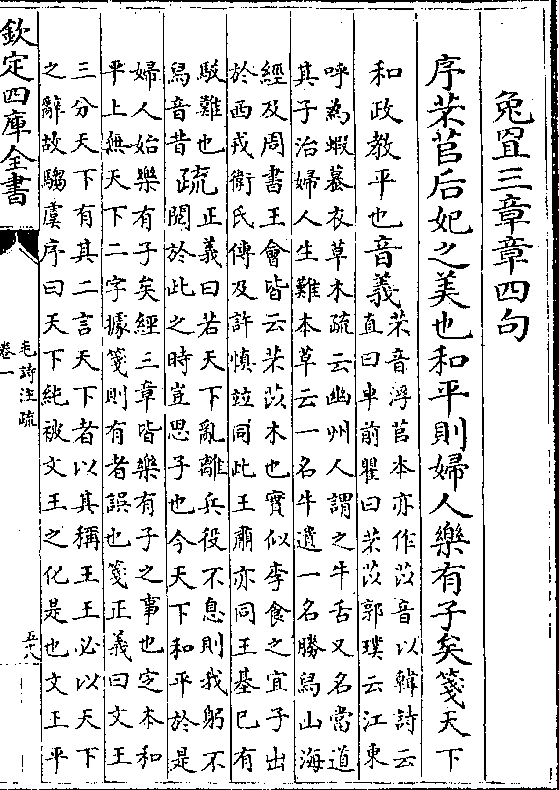 兔罝三章章四句
序芣苢后妃之美也和平則婦人樂有子矣箋天下
和政教平也音義
芣音浮苢本亦作苡音以韓詩云
直曰車前瞿曰芣苡郭璞云江東
呼為蝦蟇衣草木疏云幽州人謂之牛舌又名當道
其子治婦人生難本草云一名牛遺一名勝舄山海
經及周書王會皆云芣苡木也實似李食之宜子出
於西戎衛氏傳及許慎竝同此王肅亦同王基已有
駮難也疏正義曰若天下亂離兵役不息則我躬不
舄音昔
閱於此之時豈思子也今天下和平於是
婦人始樂有子矣經三章皆樂有子之事也定本和
平上無天下二字據箋則有者誤也箋正義曰文王
三分天下有其二言天下者以其稱王王必以天下
之辭故騶虞序曰天下純被文王之化是也文王平
欽定四庫全書
毛詩注疏
卷一
五八